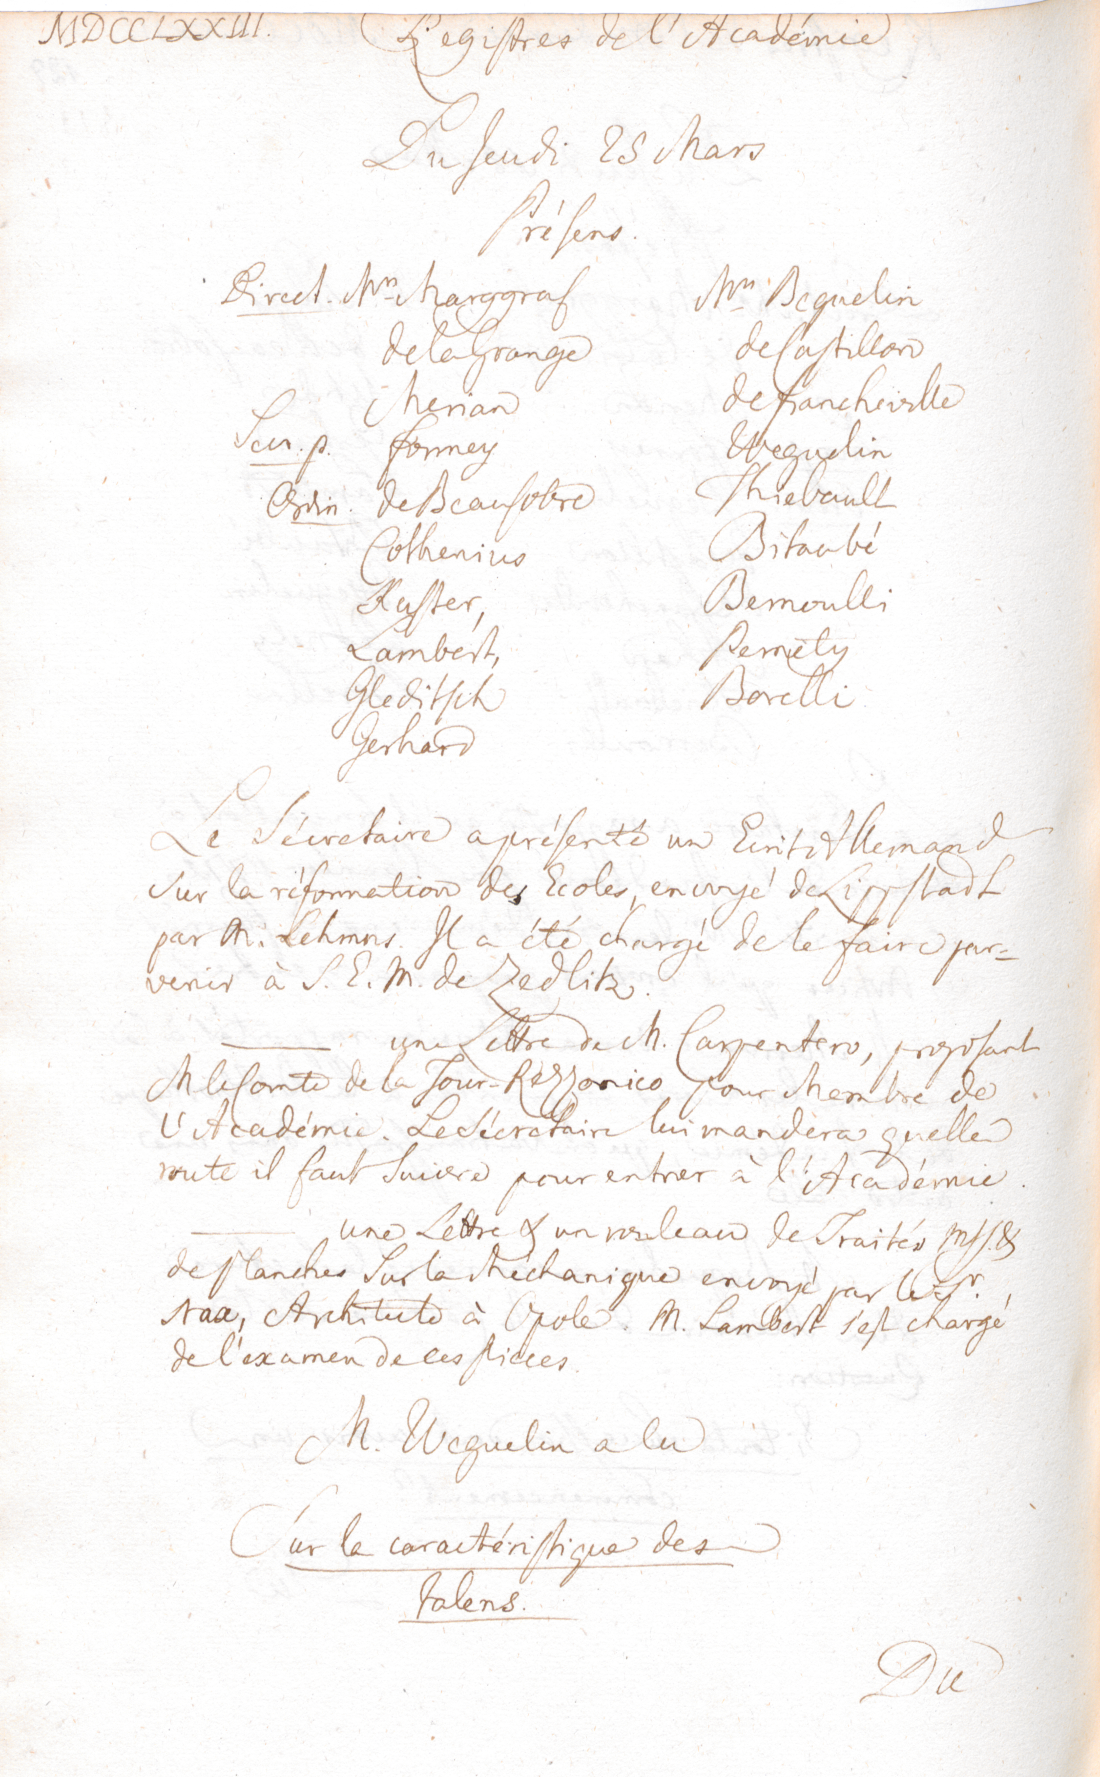 MDCCLXXIII. Registres de l'Académie
Du Jeudi 25 Mars
Présens.
Direct. Mrs Marggraf
de la Grange
Merian
Secr. p. Formey
Ordin. de Beausobre
Cothenius
Kuster,
Lambert,
Gleditsch
Gerhard
Mrs Beguelin
de Castillon
de Francheville
Weguelin
Thiebault
Bitaubé
Bernoulli
Pernety
Borelli
Le Sécretaire a présenté un Ecrit Allemand
sur la réformation des Ecoles, envoyé de Lippstadt
par M. Lehmus. Il a été chargé de le faire par=
venir à S. E. M. de Zedlitz.
——— une Lettre de M. Carpentero, proposant
M le Comte de la Tour-Rezzonico pour Membre de
l'Académie. Le Sécretaire lui mandera quelle
route il faut suivre pour entrer à l'Académie.
——— une Lettre & un rouleau de Traités mss. &
de planches sur la Méchanique envoyé par le Sr.
Naa, Architecte à Opole. M. Lambert s'est chargé
de l'examen de ces pieces.
M. Weguelin a lu
Sur la caractéristique des
talens.
Du